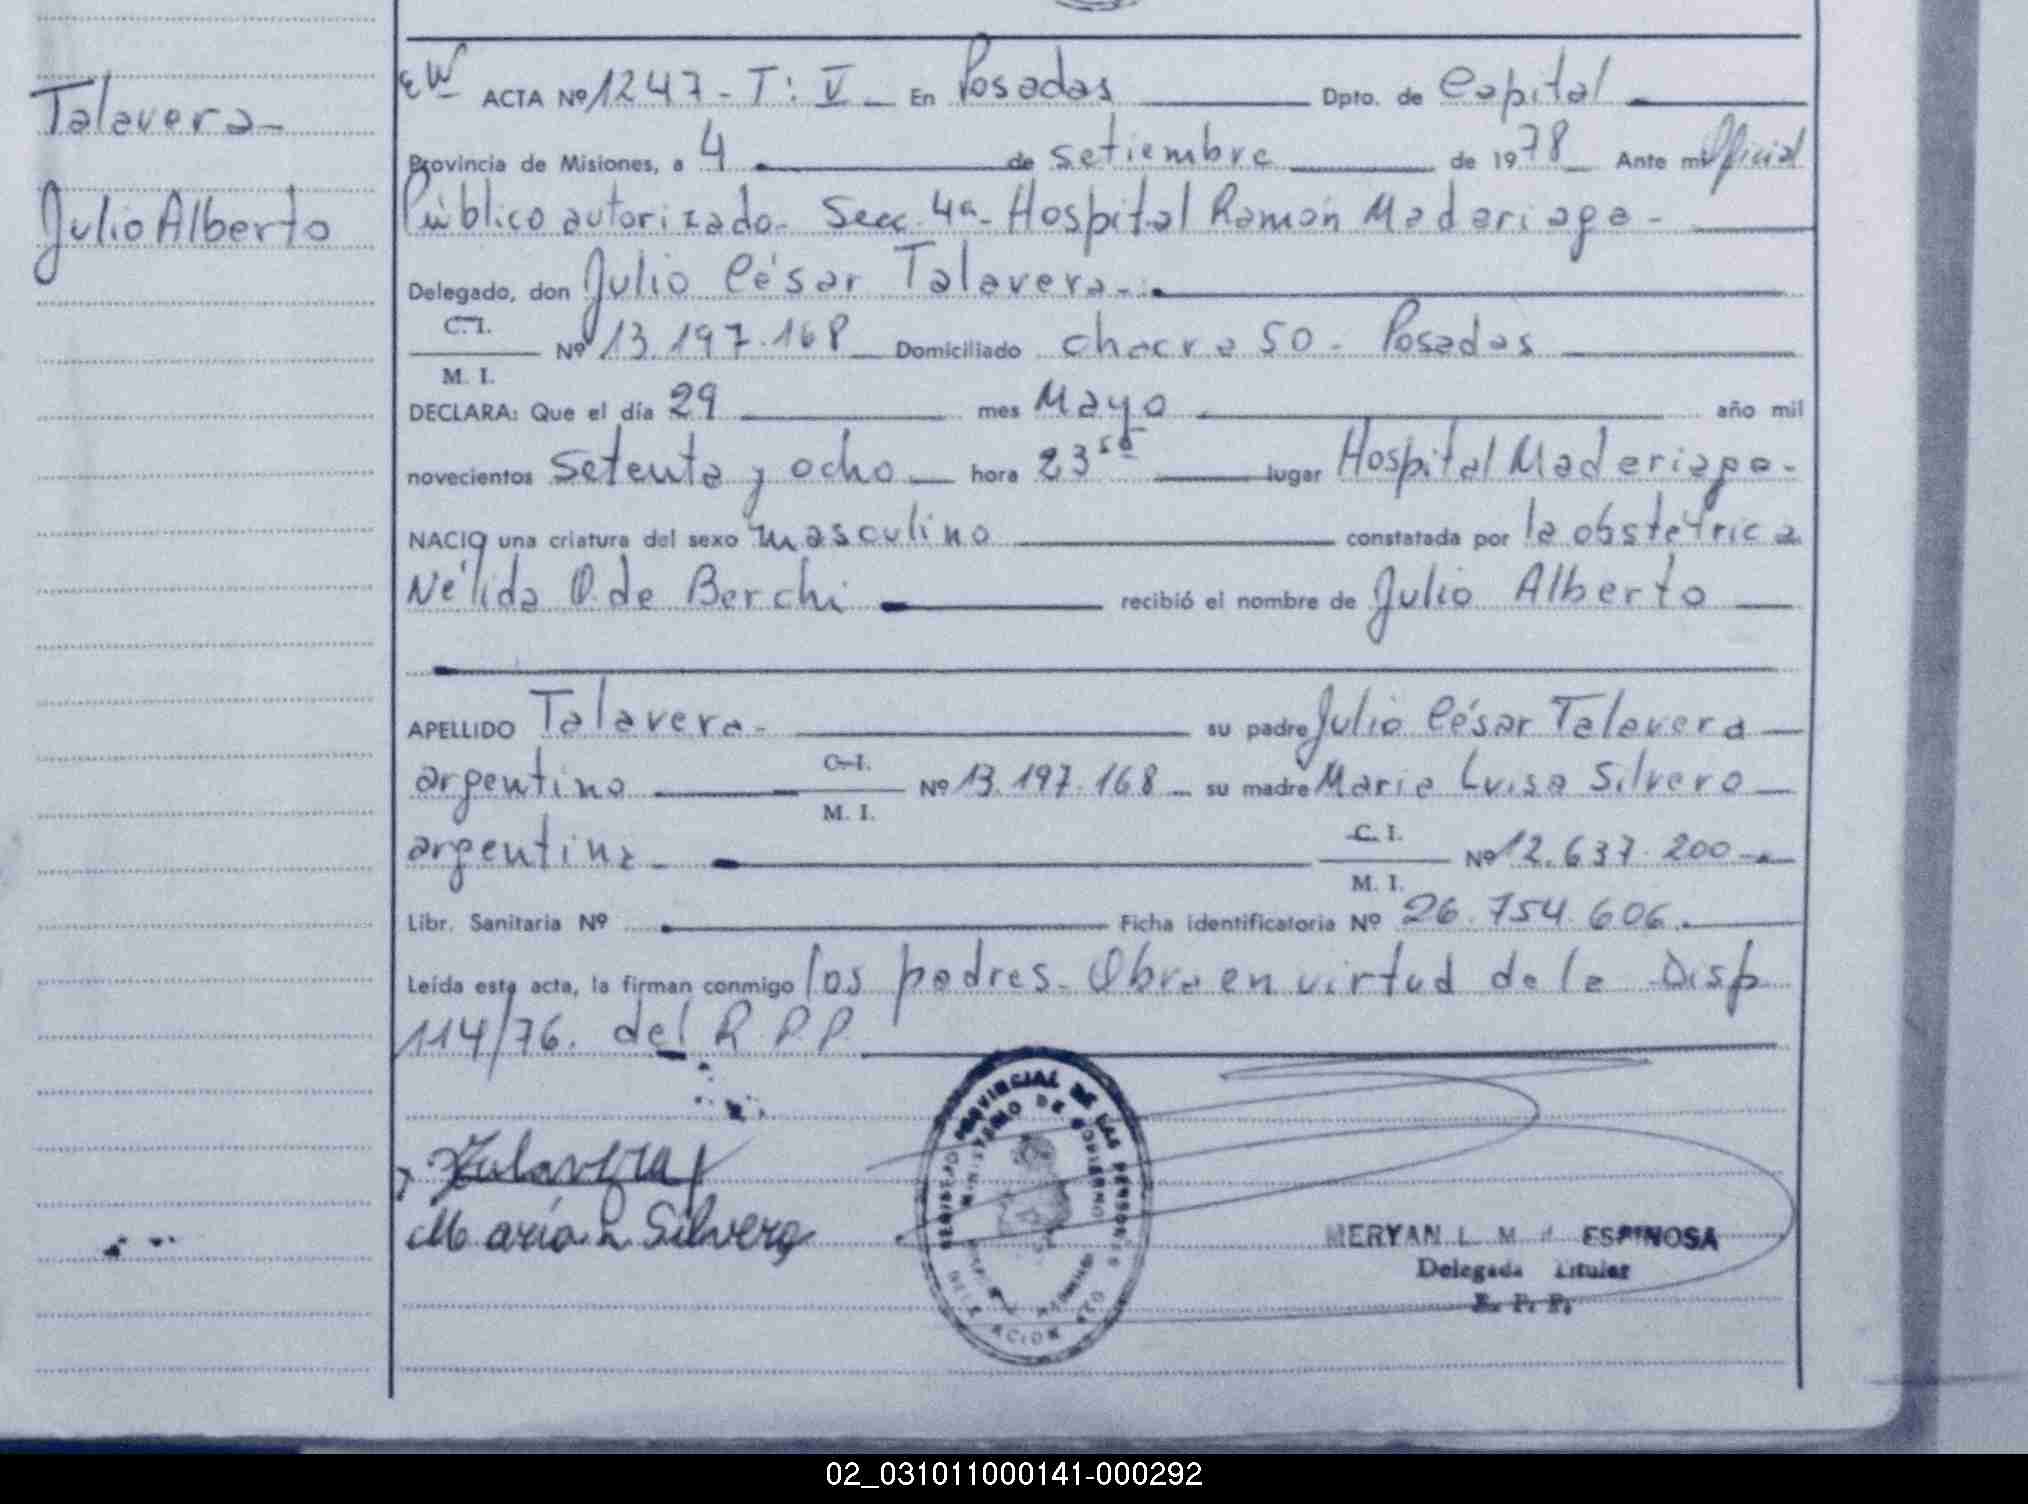 Talavera-
Julio Alberto
EW ACTA Nº 1247 - T: V - En Posadas Dpto. de Capital
Provincia de Misiones, a 4 de setiembre de 1978 Ante mi Oficial
Público autorizado. Secc. 4ª - Hospital Ramón Madariaga -
Delegado, don Julio César Talavera -
C. I.
Nº 13.197.168 Domiciliado chacra 50 - Posadas
M. I.
DECLARA: Que el día 29 mes Mayo año mil
novecientos setenta y ocho hora 23 50 lugar Hospital Madariaga -
NACIO una criatura del sexo masculino constatada por la obstetrica
Nélida O. de Berchi recibió el nombre de Julio Alberto
APELLIDO Talavera - su padre Julio César Talavera
argentino C. I. Nº 13.197.168 su madre Maria Luisa Silvero
M. I.
argentina - C. I. Nº 12.637.200
M. I.
Libr. Sanitaria Nº Ficha identificatoria Nº 26.754.606.
Leída esta acta, la firman conmigo los padres. Obra en virtud de la Disp
114/76. del R.P.P.
Talavera
María L Silvero
REGISTRO PROVINCIAL DE LAS PERSONAS
MINISTERIO DE GOBIERNO
MERYAN L. M. ESPINOSA
Delegada Titular
R. P. P.
02_031011000141-000292